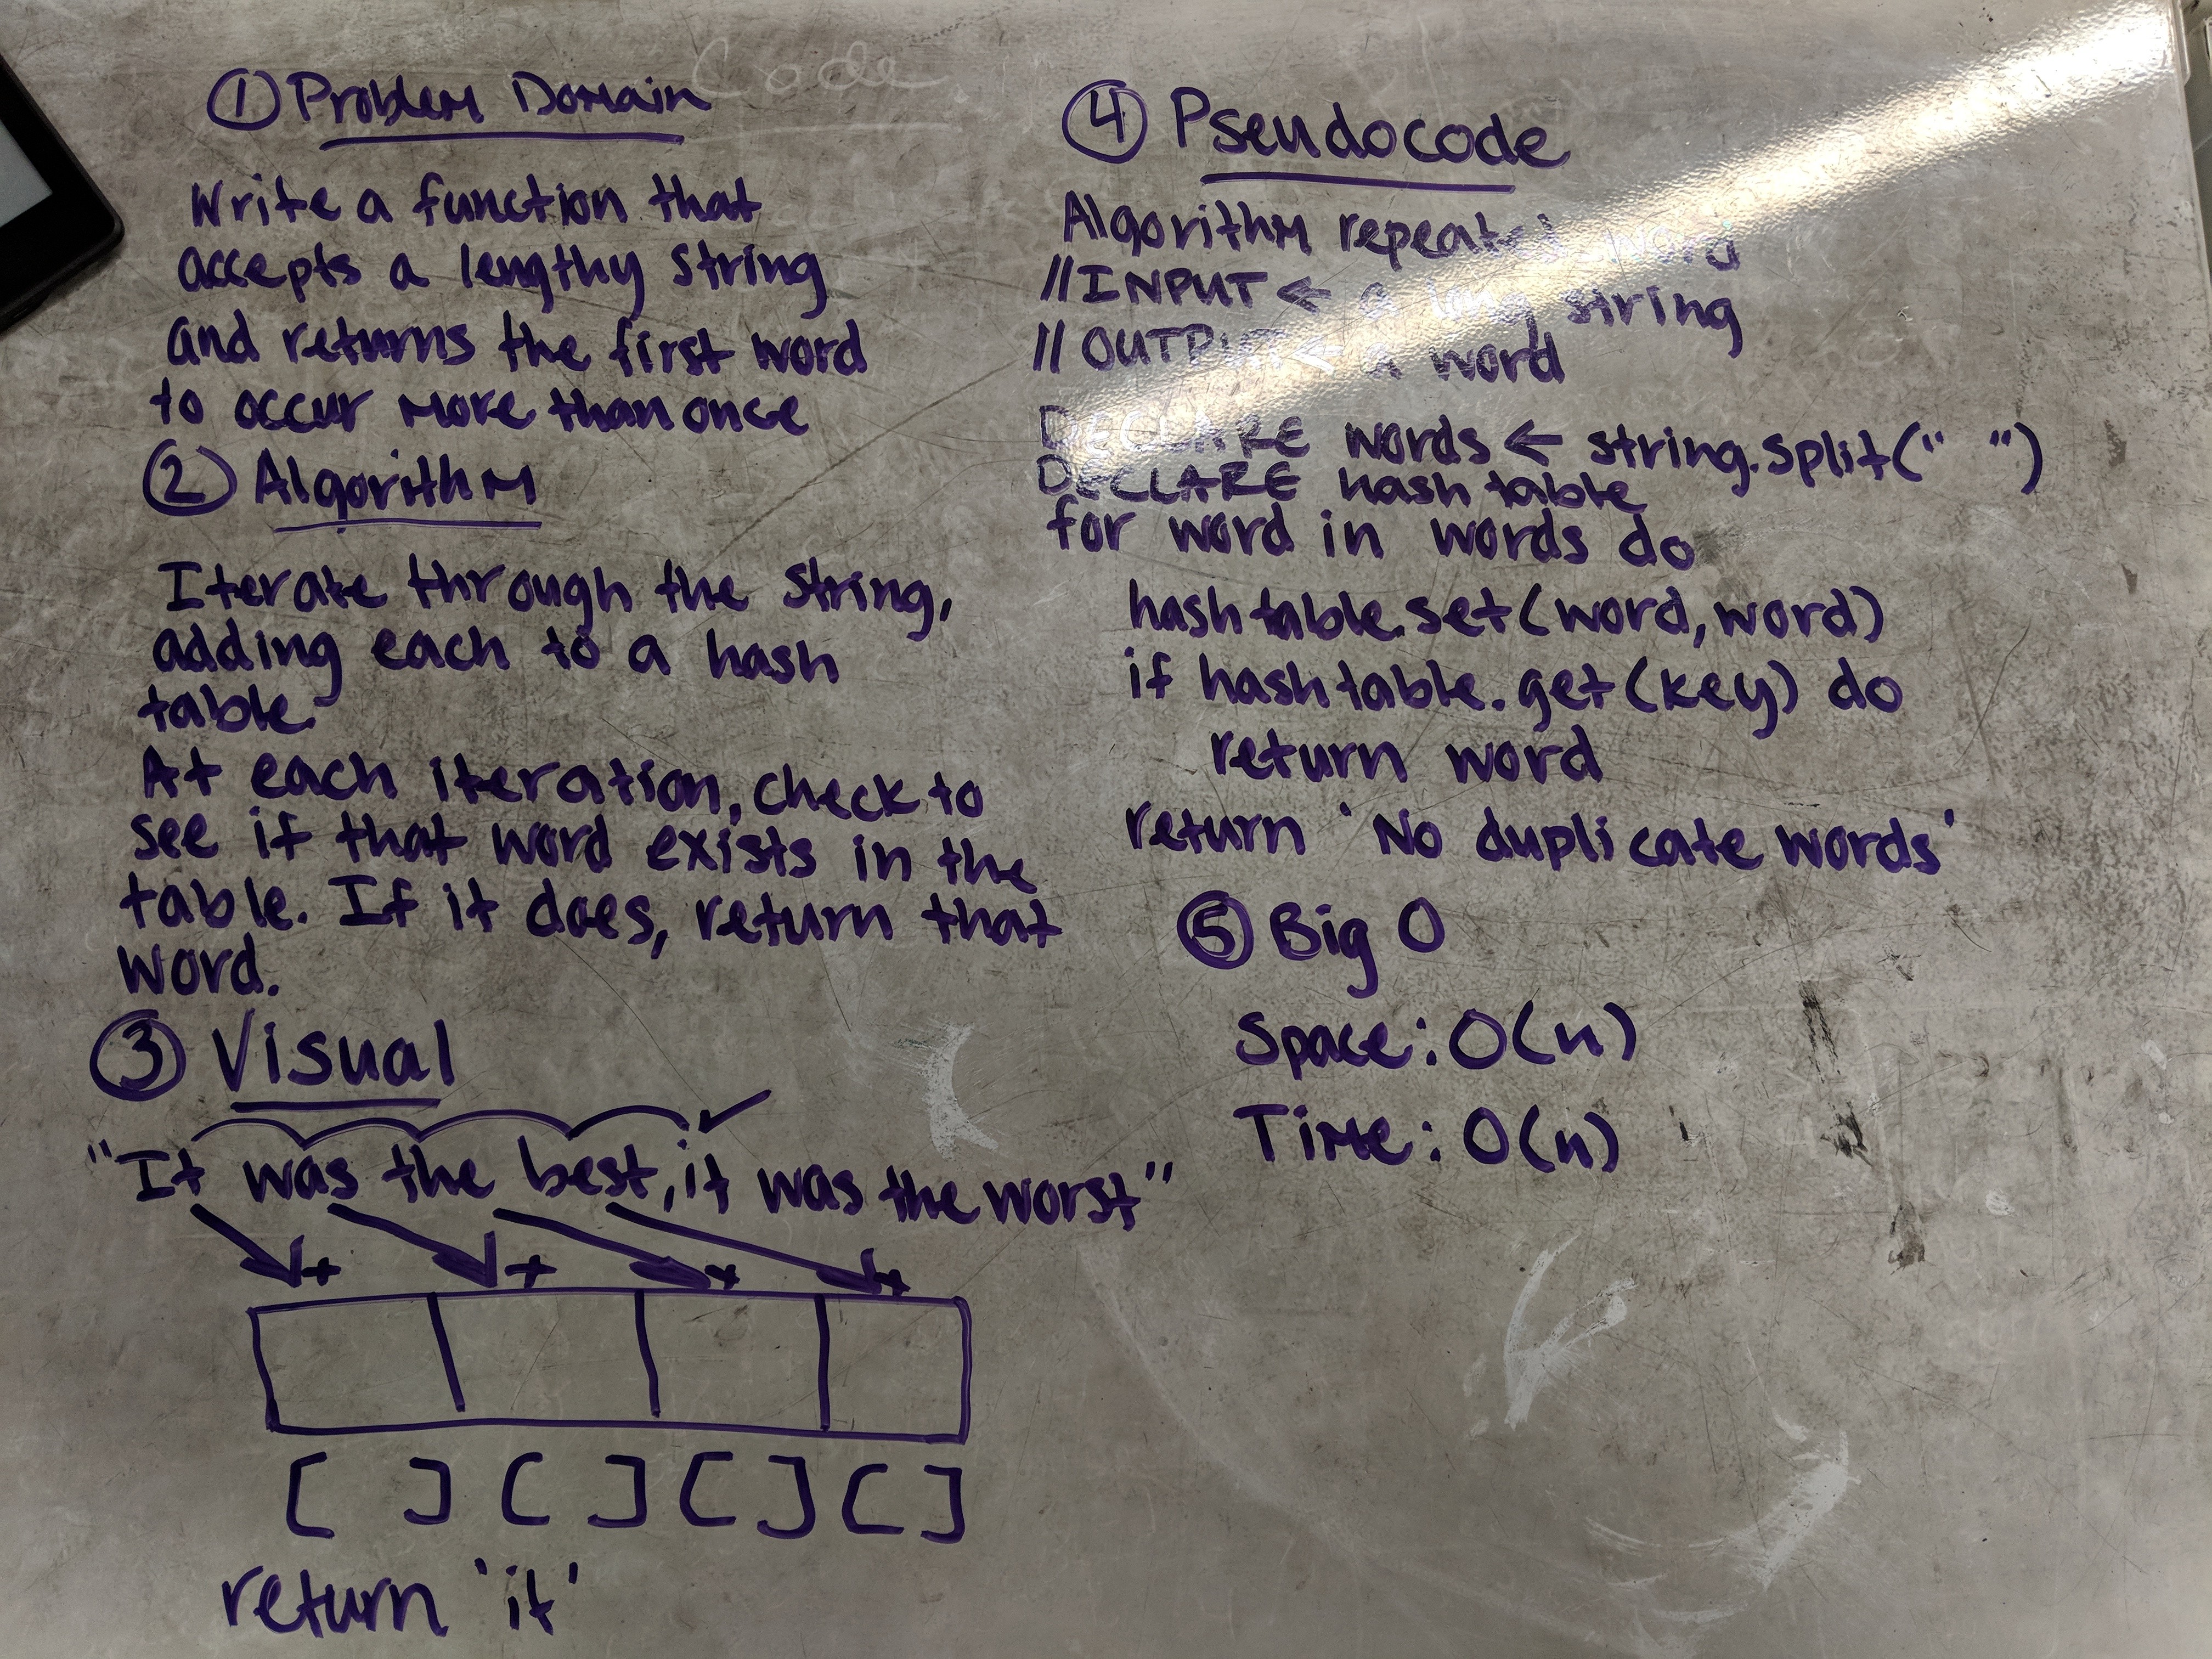 Code
① Problem Domain
Write a function that
accepts a lengthy string
and returns the first word
to occur more than once
② Algorithm
Iterate through the string,
adding each to a hash
table.
At each iteration, check to
see if that word exists in the
table. If it does, return that
word.
③ Visual
"It was the best, it was the worst"
+ + + +
[ ] [ ] [ ] [ ]
return 'it'
④ Pseudocode
Algorithm repeated word
//INPUT ← a long string
// OUTPUT ← a word
DECLARE words ← string.split(" ")
DECLARE hash table
for word in words do
hashtable.set(word, word)
if hashtable.get(key) do
return word
return 'No duplicate words'
⑤ Big O
Space: O(n)
Time: O(n)